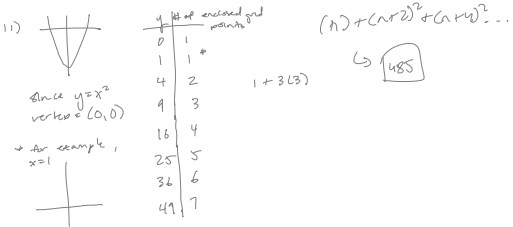 11)
since y=x²
vertex = (0,0)
* for example,
x=1
y # of enclosed grid points
0 1
1 1 *
4 2
9 3
16 4
25 5
36 6
49 7
1 + 3(3)
(n)+(n+2)²+(n+4)²...
↳ 485